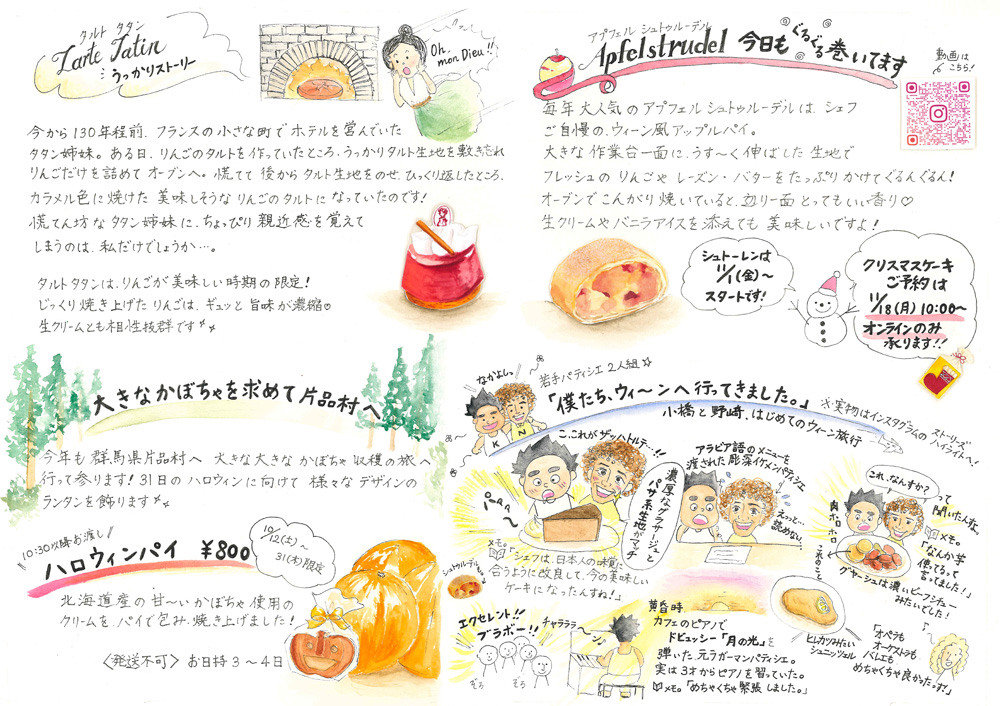 タルト タタン
Tarte Tatin
うっかりストーリー
Oh,
mon Dieu!!
今から130年程前、フランスの小さな町でホテルを営んでいた
タタン姉妹。ある日、りんごのタルトを作っていたところ、うっかりタルト生地を敷き忘れ
りんごだけを詰めてオーブンへ。慌てて後からタルト生地をのせ、ひっくり返したところ、
カラメル色に焼けた美味しそうなりんごのタルトになっていたのです!
慌てん坊なタタン姉妹に、ちょっぴり親近感を覚えて
しまうのは、私だけでしょうか…。
タルトタタンは、りんごが美味しい時期の限定!
じっくり焼き上げたりんごは、ギュッと旨味が濃縮♡
生クリームとも相性抜群です
アプフェル シュトゥルーデル
Apfelstrudel 今日もぐるぐる巻いてます
動画は
こちら!
毎年大人気のアプフェルシュトゥルーデルは、シェフ
ご自慢の、ウィーン風アップルパイ。
大きな作業台一面に、うす〜く伸ばした生地で
フレッシュのりんごやレーズン・バターをたっぷりかけてぐるんぐるん!
オーブンでこんがり焼いていると、辺り一面とってもいい香り♡
生クリームやバニラアイスを添えても美味しいですよ!
シュトーレンは
11/1(金)〜
スタートです!
クリスマスケーキ
ご予約は
11/18(月)10:00〜
オンラインのみ
承ります!!
大きなかぼちゃを求めて片品村へ
今年も群馬県片品村へ 大きな大きなかぼちゃ収穫の旅へ
行って参ります!31日のハロウィンに向けて 様々なデザインの
ランタンを飾ります
10:30以降お渡し
ハロウィンパイ ¥800
10/12(土)〜
31(木)限定
北海道産の甘〜いかぼちゃ使用の
クリームを、パイで包み、焼き上げました!
〈発送不可〉 お日持3〜4日
なかよしっ
K N
若手パティシエ2人組☆
「僕たち、ウィ〜ンへ行ってきました。」
小橋と野崎、はじめてのウィーン旅行
※実物はインスタグラムのストーリーズ
ハイライトへ!
こ、これがザッハトルテ…!!
パァァ〜
濃厚なグラサージュと
パサ系生地がマッチ
メモ。
「シェフは、日本人の味覚に
合うように改良して、今の美味しい
ケーキになったんすね!」
シュトゥルーデルも。
アラビア語のメニューを
渡された彫深イケメンパティシエ
えっ…
読めない…
これ、なんすか?
って
聞いた奴。
肉ホロホロ
これのこと
メモ。
「なんか芋
使ってるって
言ってました!」
グヤーシュは濃いビーフシチュー
みたいでした!
エクセレント!!
ブラボー!!
ぞろ ぞろ
チャラララ〜ン♪
黄昏時
カフェのピアノで
ドビュッシー「月の光」を
弾いた、元ラガーマンパティシエ。
実は3才からピアノを習っていた。
メモ。「めちゃくちゃ緊張しました。」
ヒレカツみたいな
シュニッツェル
「オペラも
オーケストラも
バレエも
めちゃくちゃ良かったっす!」